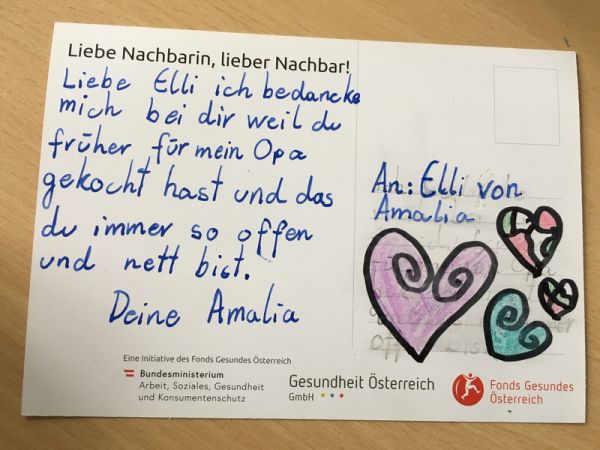 Liebe Nachbarin, lieber Nachbar!
Liebe Elli ich bedancke
mich bei dir weil du
früher für mein Opa
gekocht hast und das
du immer so offen
und nett bist.
Deine Amalia
An: Elli von
Amalia
Eine Initiative des Fonds Gesundes Österreich
Bundesministerium
Arbeit, Soziales, Gesundheit
und Konsumentenschutz
Gesundheit Österreich
GmbH
Fonds Gesundes
Österreich